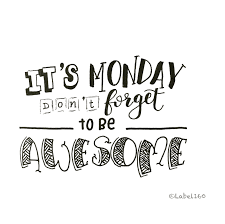 IT'S MONDAY
DON'T forget
TO BE
AWESOME
©Label160